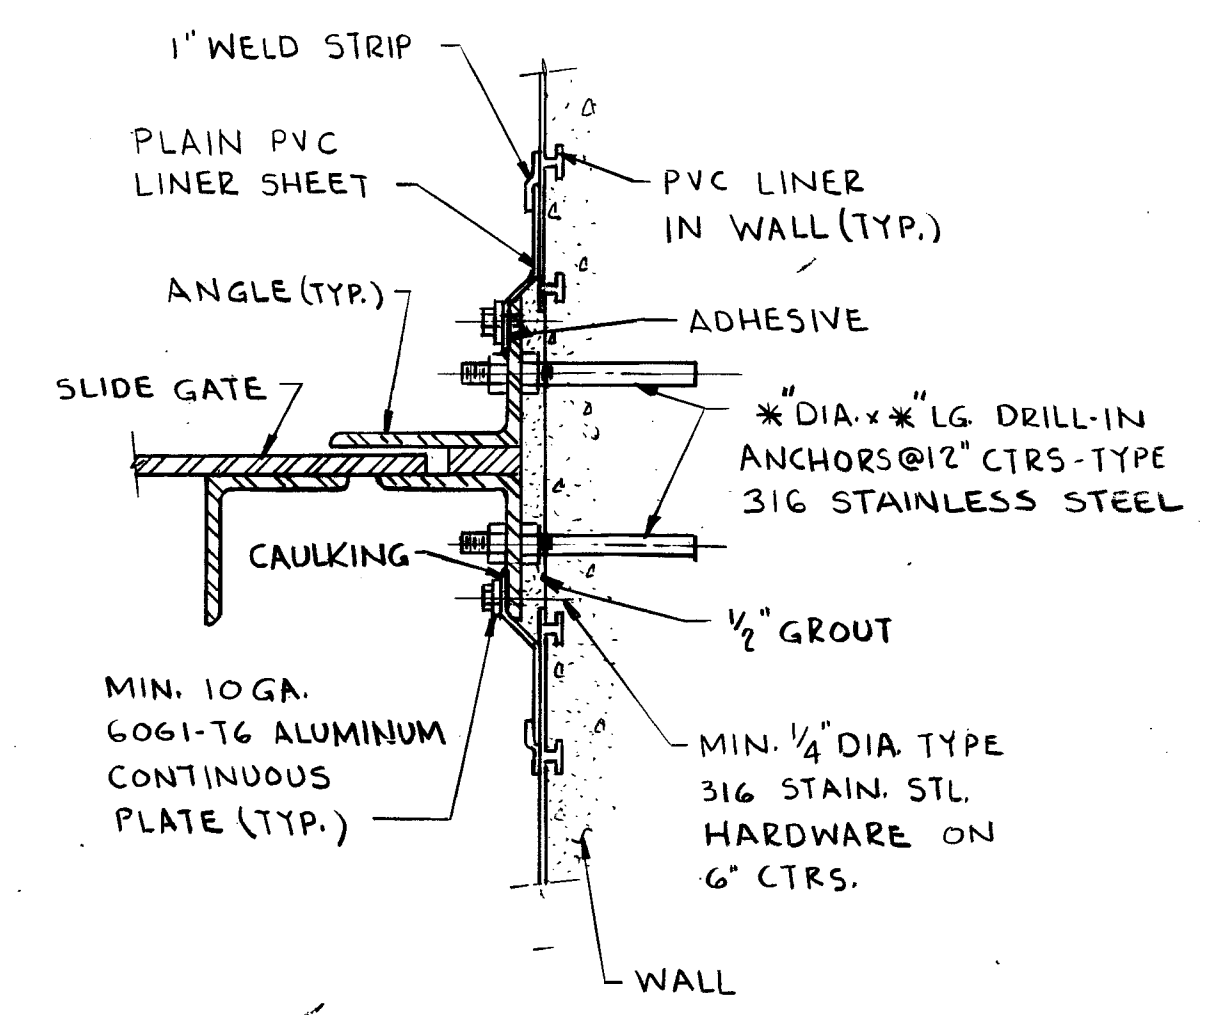 1" WELD STRIP
PLAIN PVC
LINER SHEET
PVC LINER
IN WALL (TYP.)
ANGLE (TYP.)
ADHESIVE
SLIDE GATE
*" DIA. x *" LG. DRILL-IN
ANCHORS @ 12" CTRS - TYPE
316 STAINLESS STEEL
CAULKING
1/2" GROUT
MIN. 10 GA.
6061-T6 ALUMINUM
CONTINUOUS
PLATE (TYP.)
MIN. 1/4" DIA. TYPE
316 STAIN. STL.
HARDWARE ON
6" CTRS.
WALL